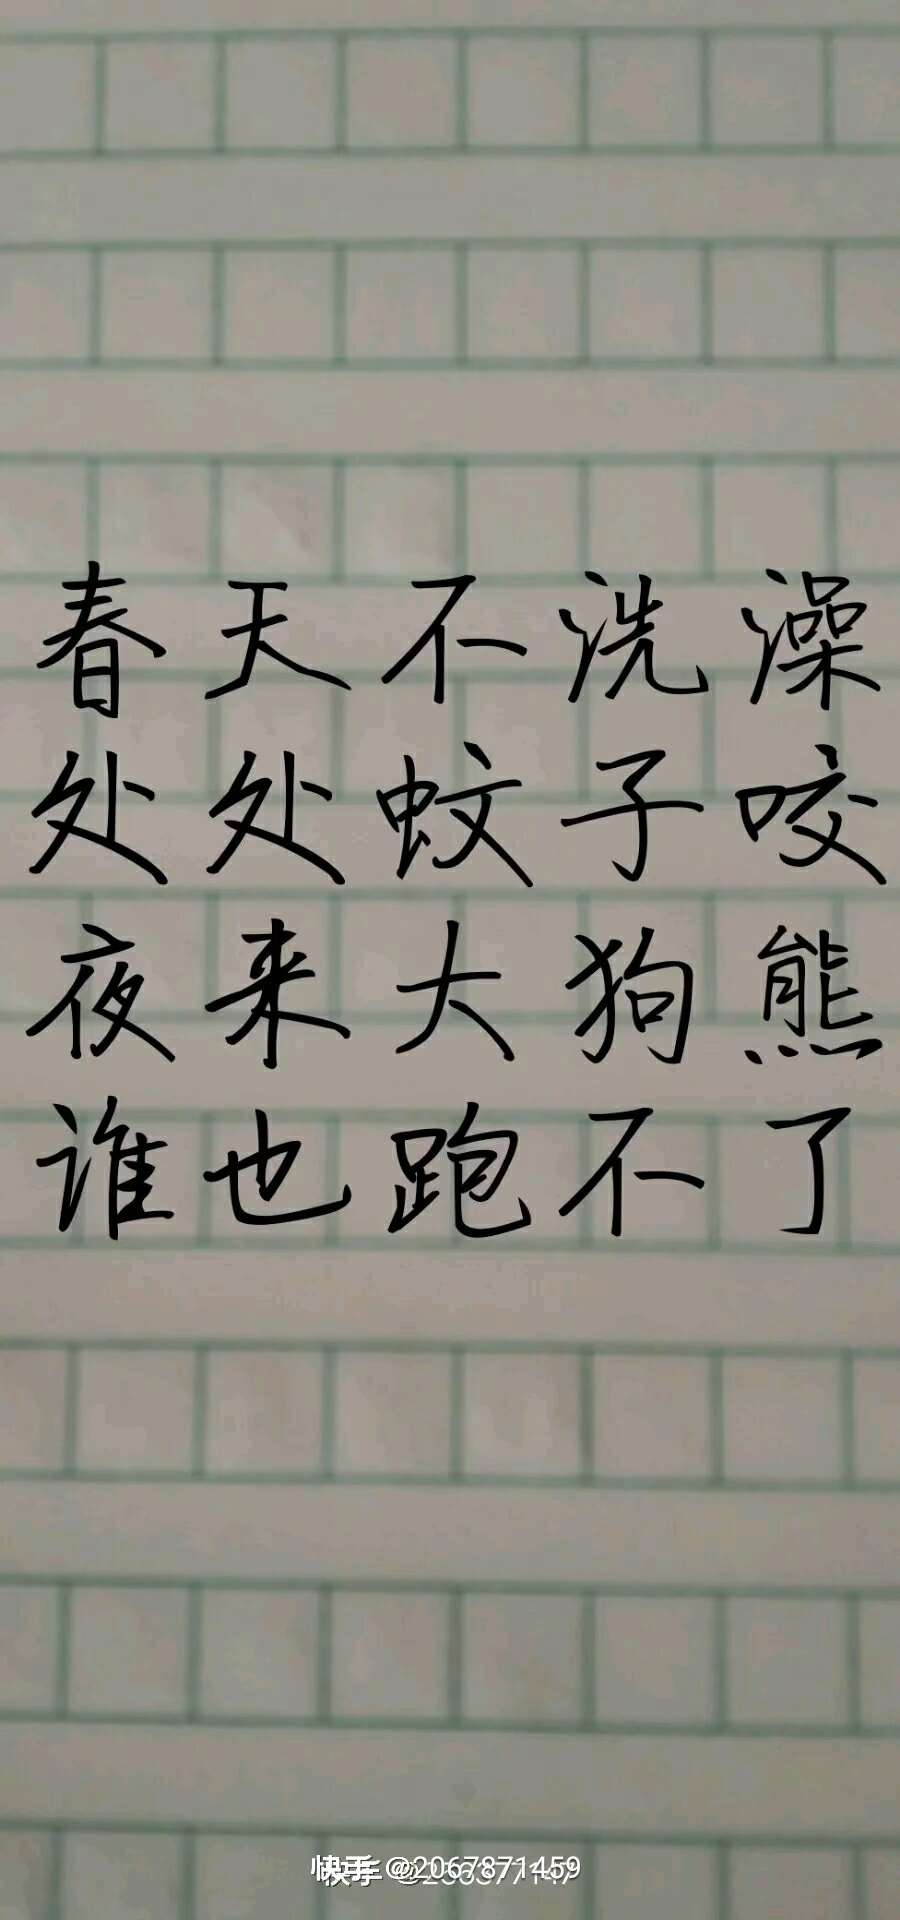 春天不洗澡
处处蚊子咬
夜来大狗熊
谁也跑不了
快手 @2067871459